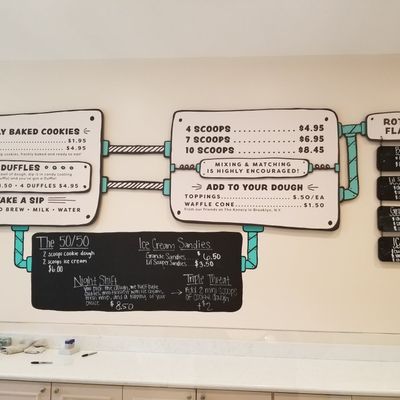 LY BAKED COOKIES
$1.95
$4.95
DUFFLES
1.50 - 4 DUFFLES $4.95
AKE A SIP
D BREW • MILK • WATER
4 SCOOPS $4.95
7 SCOOPS $6.95
10 SCOOPS $8.45
MIXING & MATCHING
IS HIGHLY ENCOURAGED!
ADD TO YOUR DOUGH
TOPPINGS $.50/EA
WAFFLE CONE $1.50
ROT
FLA
The 50/50
2 scoops cookie dough
2 scoops ice cream
$6.00
Ice Cream Sandies
Grande Sandies $6.50
Lil Sooper Sandies $3.50
Night Shift
$8.50
Triple Threat
Add 2 mini scoops
of cookie dough
+$2